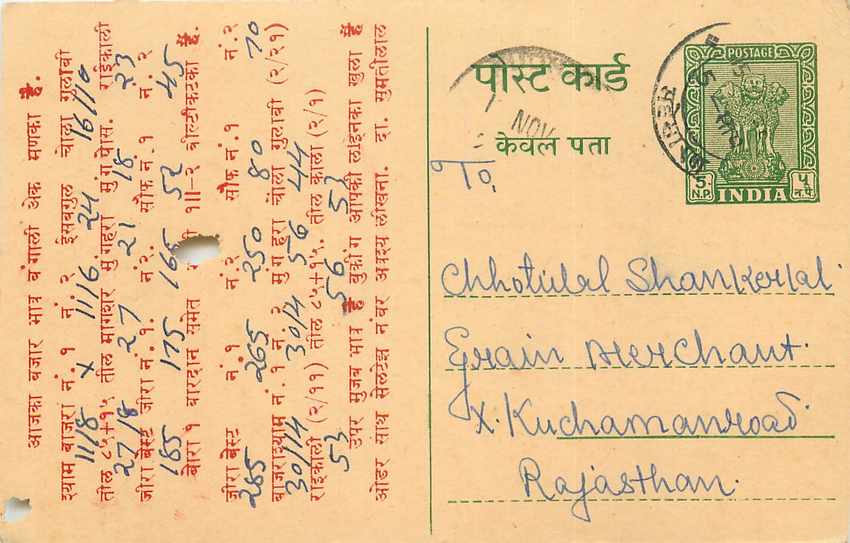 पोस्ट कार्ड
केवल पता
POSTAGE
5 N.P.
INDIA
५ न.पै.
NOV
To,
Chhotulal Shankerlal
Grain Merchant.
X. Kuchamanroad.
Rajasthan.
आजका बजार भाव बंगाली अेक मणका है.
श्याम बाजरा नं. १ नं. २ ईसबगुल चोला गुलाबी
11/8 x 11/6 24 16/10
तील ८५+१५ तील मागशर मुंगहरा मुंगघास. राईकाली
27/8 27 21 18 23
जीरा बेस्ट जीरा नं. १. नं. २. सौफ नं. १ नं. २
185 175 165 52 45
बोरा १ बारदान समेत १॥-२ बोल्टीकटका है.
जीरा बेस्ट नं. १ नं. २ सौफ नं. १ नं. २
285 265 250 80 70
बाजराश्याम नं. १ नं. २ मुग हरा चोला गुलाबी (२/२१)
30/14 30/4 56 44
राईकाली (२/११) तील ८५+१५ तील काला (२/१)
53 56 53
उपर मुजब भाव है बुकींग आपकी लाईनका खुला है
ओडर साथ सेलटेक्ष नंबर अवश्य लीखना. दा. सुमतीलाल